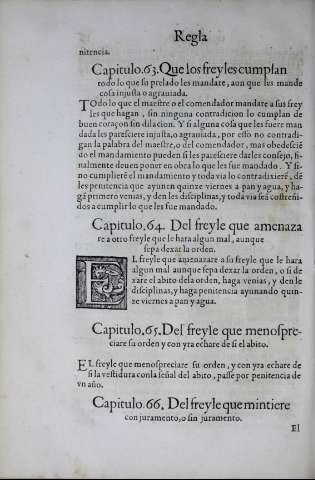 Regla
nitencia.
Capitulo.63.Que los freyles cumplan
todo lo que su prelado les mandare, aun que les mande
cosa injusta o agrauiada.
TOdo lo que el maestre o el comendador mandare a sus frey
les que hagan, sin ninguna contradicion lo cumplan de
buen coraçon sin dilacion. Y si alguna cosa que les fuere man
dada les paresciere injusta,o agrauiada, por esso no contradi-
gan la palabra del maestre,o del comendador, mas obedescié
do el mandamiento pueden si les paresciere darles consejo, fi-
nalmente deuen poner en obra lo que les fue mandado. Y si-
no cumplieré el mandamiento y toda via lo contradixeré, dé
les penitencia que ayunen quinze viernes a pan y agua, y ha-
gá primero venias, y den les disciplinas,y toda via seá costreñi-
dos a cumplir lo que les fue mandado.
Capitulo.64. Del freyle que amenaza
re a otro freyle que le hara algun mal, aunque
sepa dexar la orden.
EL freyle que amenazare a su freyle que le hara
algun mal aunque sepa dexar la orden, o si de
xare el abito dela orden, haga venias, y den le
disciplinas,y haga penitencia ayunando quin-
ze viernes a pan y agua.
Capitulo.65.Del freyle que menospre-
ciare su orden y con yra echare de si el abito.
EL freyle que menospreciare su orden,y con yra echare de
si la vestidura conla señal del abito, passe por penitencia de
vn año.
Capitulo.66. Del freyle que mintiere
con juramento,o sin juramento.
El